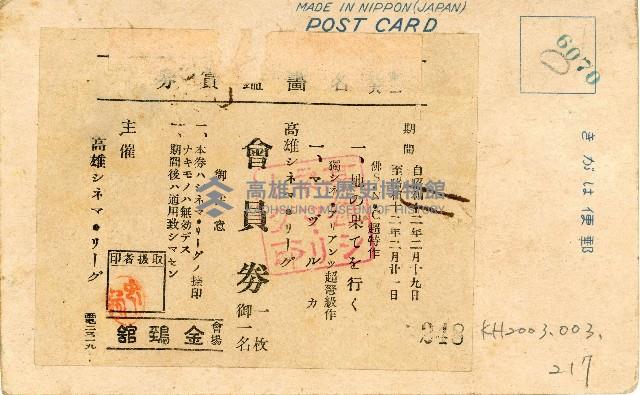 MADE IN NIPPON (JAPAN)
POST CARD
6070
きがは便郵
名畵鑑賞券
期間
自昭和十二年二月十九日
至昭和十二年二月廿一日
佛S・N・C超特作
一、地の果てを行く
獨シネ・アリアンツ超弩級作
一、マヅルカ
高雄シネマ・リーグ
會員券
一枚
御一名
御注意
一、本券ハシネマ・リーグノ捺印ナキモノハ無効デス
一、期間後ハ通用致シマセン
主催
高雄シネマ・リーグ
取扱者印
會場
金鵄舘
電二三一九
248
高雄市立歷史博物館
KAOHSIUNG MUSEUM OF HISTORY
KH2003.003.
217